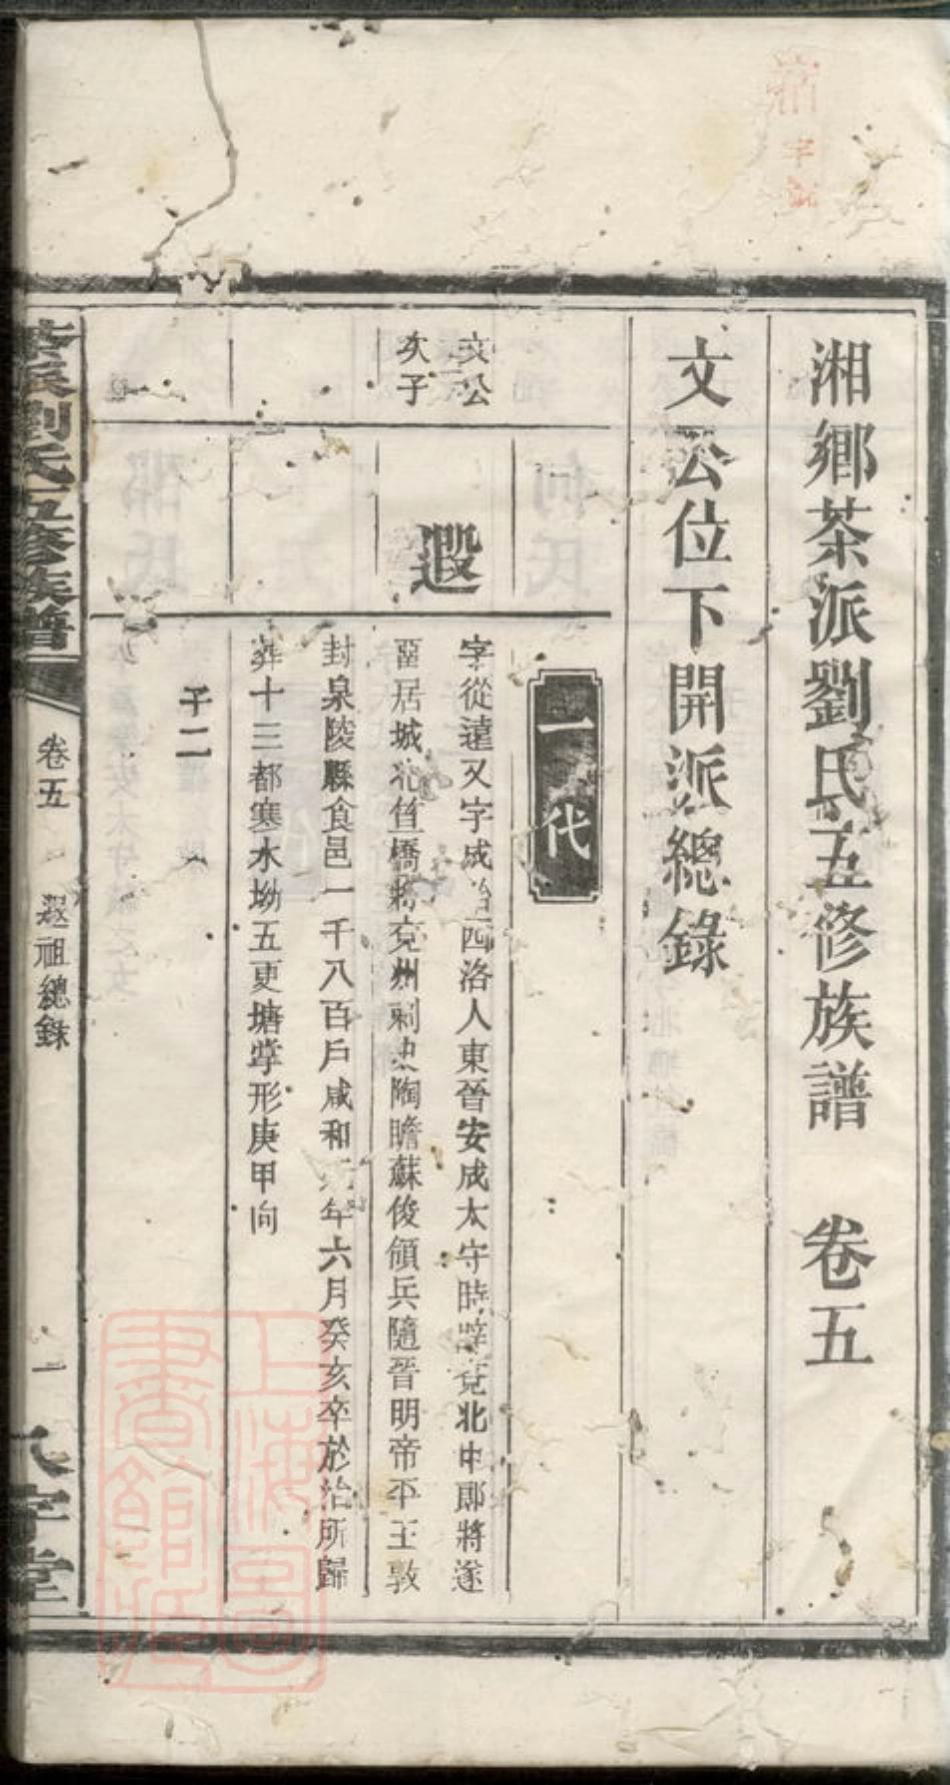 湘鄉茶派劉氏五修族譜 卷五
文公位下開派總錄
一代
文公
次子
遐
字從遠又字成治西洛人東晉安成太守時辟兗北中郎將遂
居城北笪橋蔣兗州刺史陶瞻蘇俊領兵隨晉明帝平王敦
封泉陵縣食邑一千八百戶咸和年六月癸亥卒於治所歸
葬十三都寒水坳五更塘掌形庚甲向
子二
茶派劉氏五修族譜
卷五 遐祖總錄
一
八字堂
上海圖書館藏